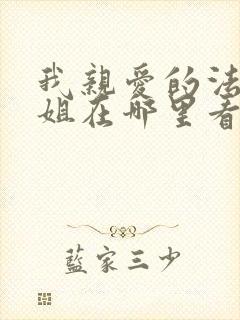 我親愛的法
姐在哪里看
藍家三少